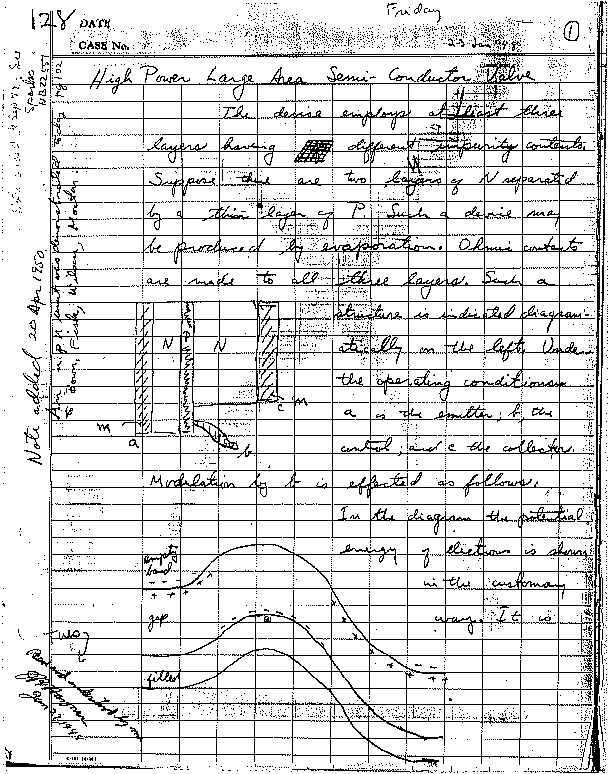 Friday
128 DATE
CASE No.
23 Jan
1
High Power Large Area Semi-Conductor Valve
The device employs at least three
layers having different impurity contents.
Suppose there are two layers of N separated
by a thin layer of P. Such a device may
be produced by evaporation. Ohmic contacts
are made to all three layers. Such a
structure is indicated diagram-
atically on the left. Under
the operating conditions
a is the emitter; b, the
control; and c the collector.
N N
m
a
b
c m
Modulation by b is effected as follows.
In the diagram the potential
energy of electrons is shown
in the customary
way. It is
empty
band
gap
filled
Note added 20 Apr 1950
An n p n unit was demonstrated today
to Bown, Fisk, Wilson, Morton.
Read and understood by me